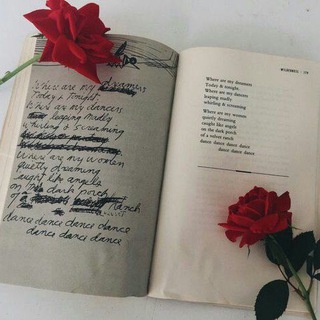 Where are my dreamers
Today & Tonight.
Where are my dancers
leaping madly
whirling & screaming
Where are my women
quietly dreaming
caught like angels
on the dark porch
of a velvet ranch
dance dance dance dance
dance dance dance
WILDERNESS
Where are my dreamers
Today & tonight.
Where are my dancers
leaping madly
whirling & screaming
Where are my women
quietly dreaming
caught like angels
on the dark porch
of a velvet ranch
dance dance dance dance
dance dance dance